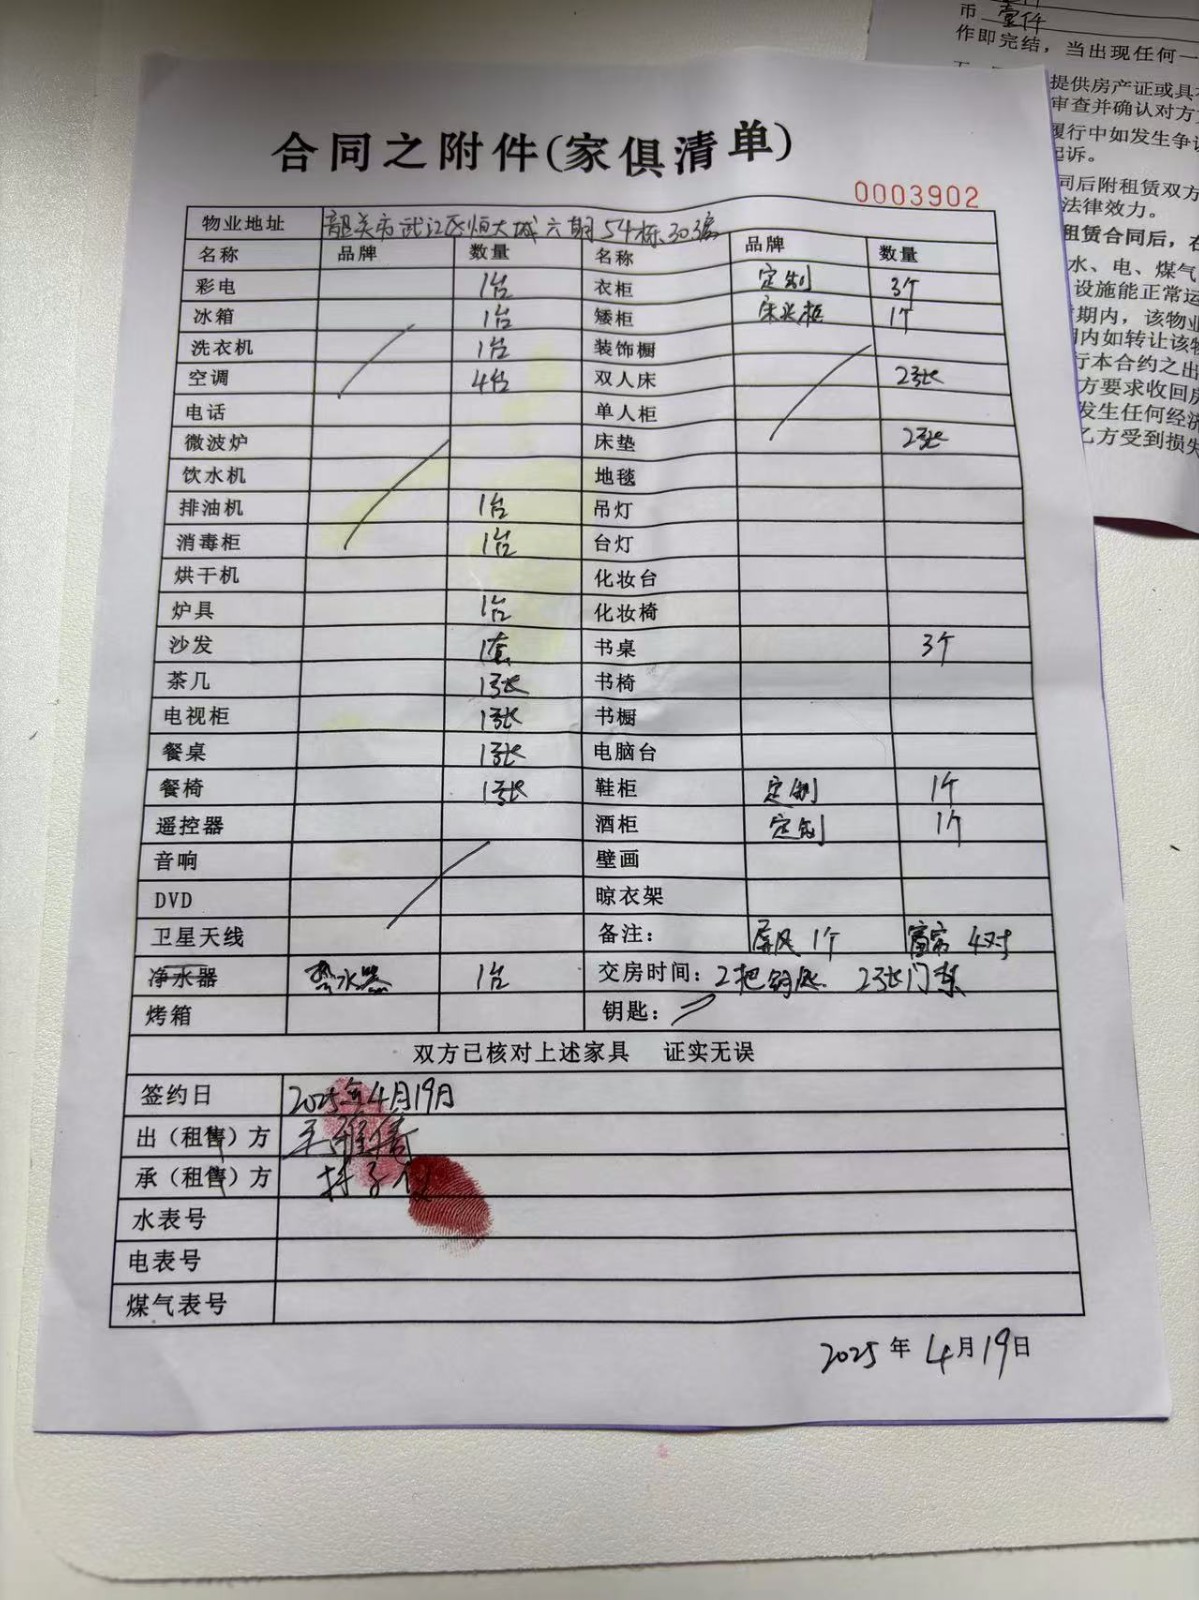 币 壹仟
作即完结，当出现任何一
提供房产证或具
审查并确认对方
履行中如发生争议
起诉。
同后附租赁双方
法律效力。
租赁合同后，在
水、电、煤气
设施能正常运
期内，该物业
期内如转让该物
行本合约之出
方要求收回房
发生任何经济
乙方受到损失
合同之附件(家俱清单)
0003902
物业地址 韶关市武江区恒大城六期54栋303
名称 品牌 数量 名称 品牌 数量
彩电 1台 衣柜 定制 3个
冰箱 1台 矮柜 床头柜 1个
洗衣机 1台 装饰橱
空调 4台 双人床 2张
电话 单人柜
微波炉 床垫 2张
饮水机 地毯
排油机 1台 吊灯
消毒柜 1台 台灯
烘干机 化妆台
炉具 1台 化妆椅
沙发 1套 书桌 3个
茶几 1张 书椅
电视柜 1张 书橱
餐桌 1张 电脑台
餐椅 1张 鞋柜 定制 1个
遥控器 酒柜 定制 1个
音响 壁画
DVD 晾衣架
卫星天线 备注： 屏风 1个 窗帘 4对
净水器 热水器 1台 交房时间：2把钥匙 2张门禁
烤箱 钥匙：
双方已核对上述家具 证实无误
签约日 2025年4月19日
出（租售）方
承（租售）方
水表号
电表号
煤气表号
2025年4月19日